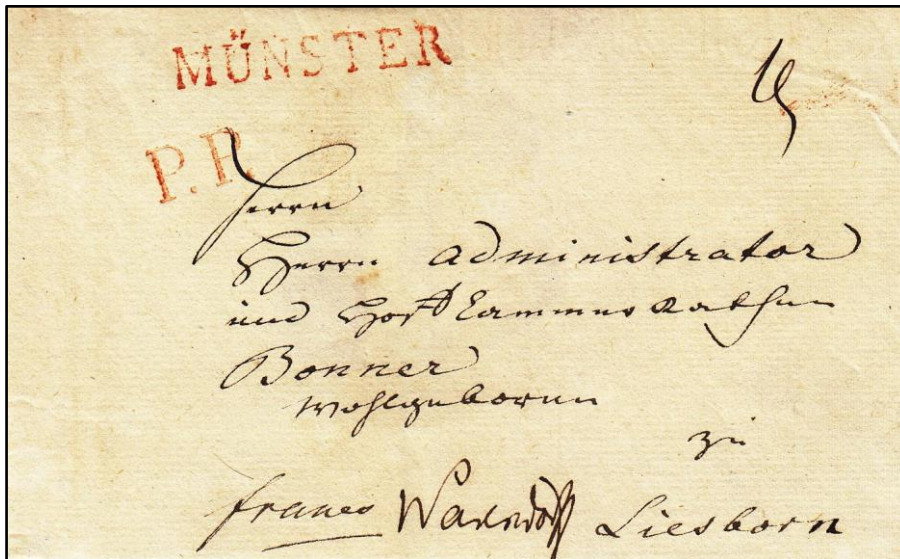 MÜNSTER
P.P.
Herrn
Herrn Administrator
und Hof Cammer Rathen
Bonner
Wohlgeboren
zu
franco Liesborn